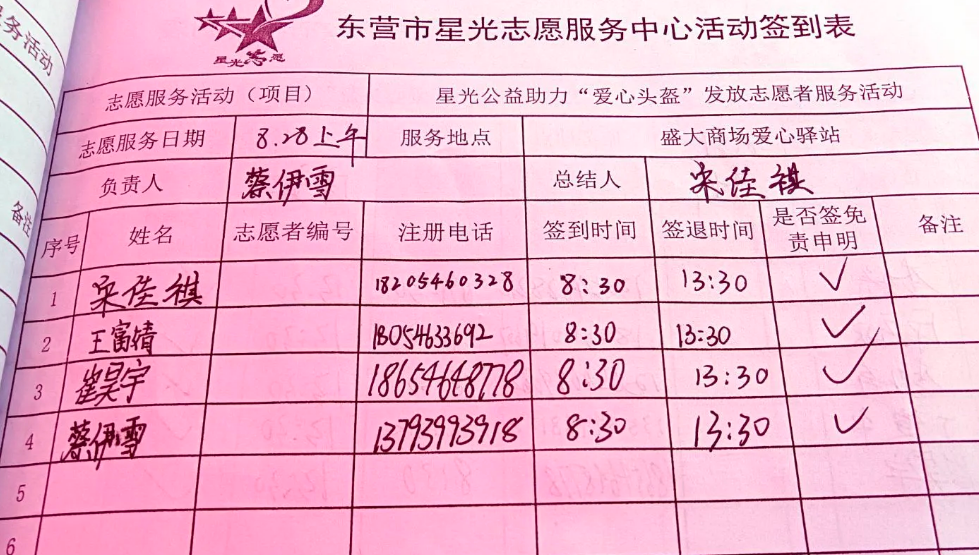 务活动
备注
星光志愿
东营市星光志愿服务中心活动签到表
志愿服务活动（项目） 星光公益助力“爱心头盔”发放志愿者服务活动
志愿服务日期 8.28上午 服务地点 盛大商场爱心驿站
负责人 蔡伊雪 总结人 宋佳祺
序号 姓名 志愿者编号 注册电话 签到时间 签退时间 是否签免责申明 备注
1 宋佳祺 18205460328 8:30 13:30 ✓
2 王富靖 18054633692 8:30 13:30 ✓
3 崔昊宇 18654648778 8:30 13:30 ✓
4 蔡伊雪 13793993918 8:30 13:30 ✓
5
6